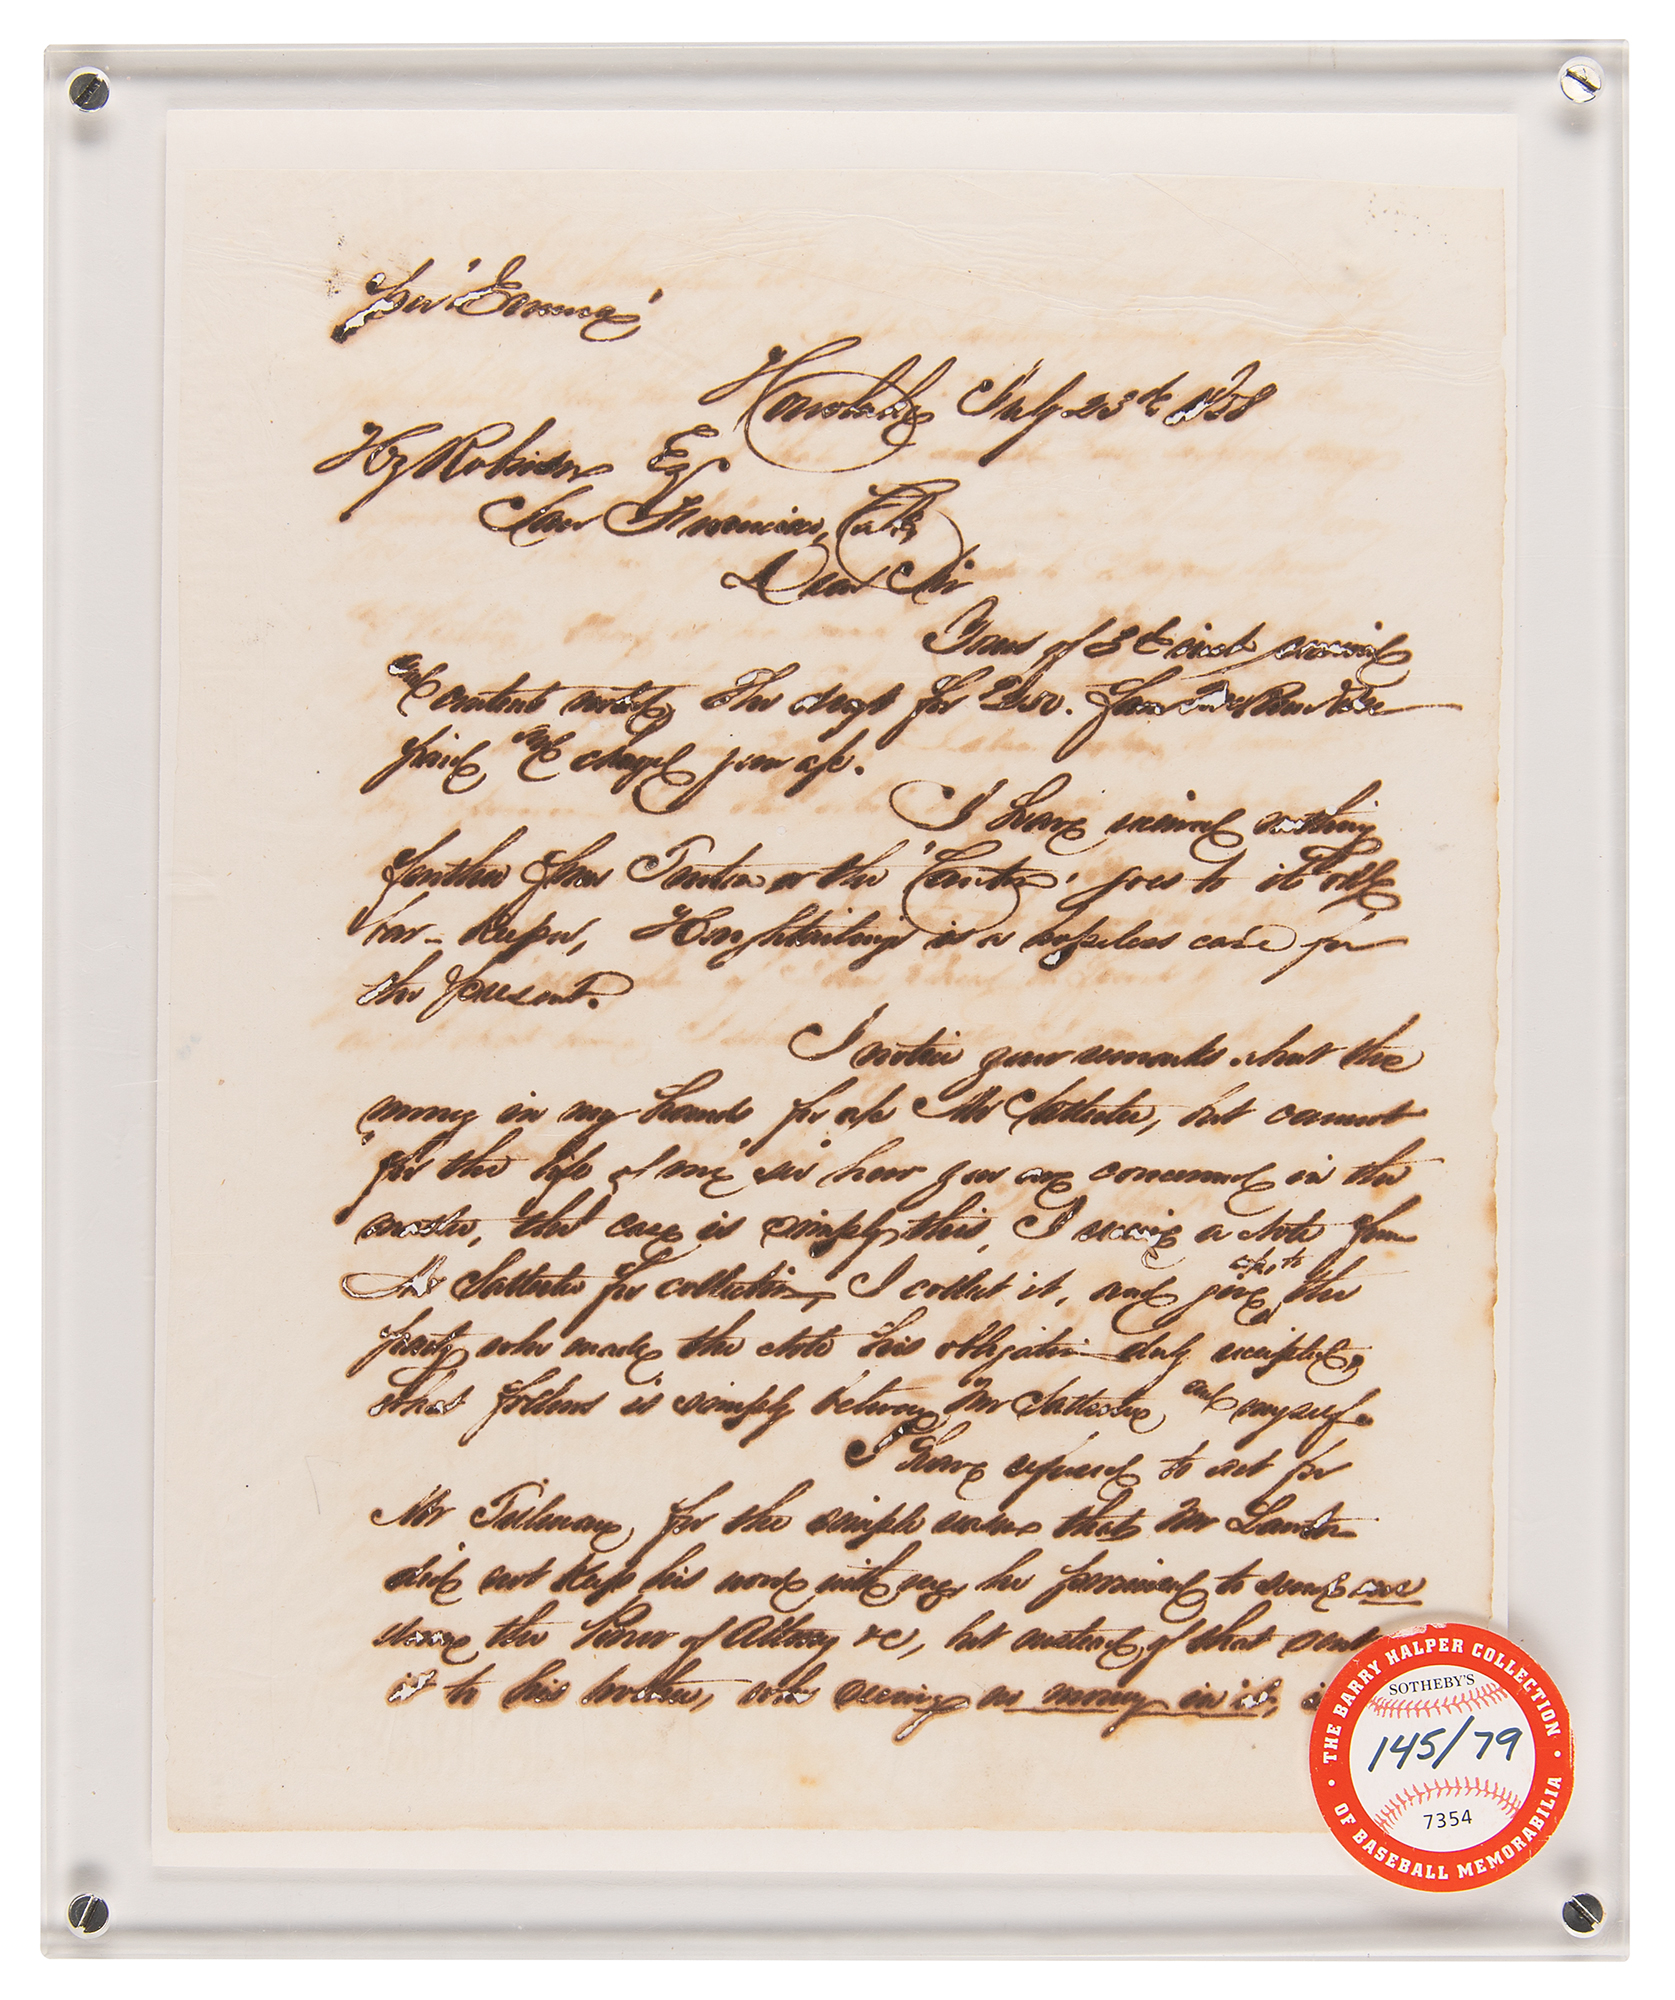 per "Emma"
Honolulu July 23d 1858
Hy Robinson Esq
San Francisco, Cala
Dear Sir
Yours of 3d inst received
and contents noted, The draft for 250. from
paid and charged your a/c.
I have received nothing
further from or the " goes to
bar-keeper, Houghtailing is a hopeless case for
the present.
I notice your remarks about the
money in my hands for a/c Mr Satterlee, but cannot
"for the life of me" see how you are concerned in the
matter, the case is simply this, I receive a Note from
Mr Satterlee for collection, I collect it, and give the
party who made the Note his obligation duly receipted,
what follows is simply between Mr Satterlee and myself.
I have refused to act for
Mr for the simple reason that Mr
did not keep his word with me, he promised to send me
the Power of Attorney &c, but instead of that sent
it to his brother, who seeing no money in it,
THE BARRY HALPER COLLECTION
SOTHEBY'S
145/79
7354
OF BASEBALL MEMORABILIA